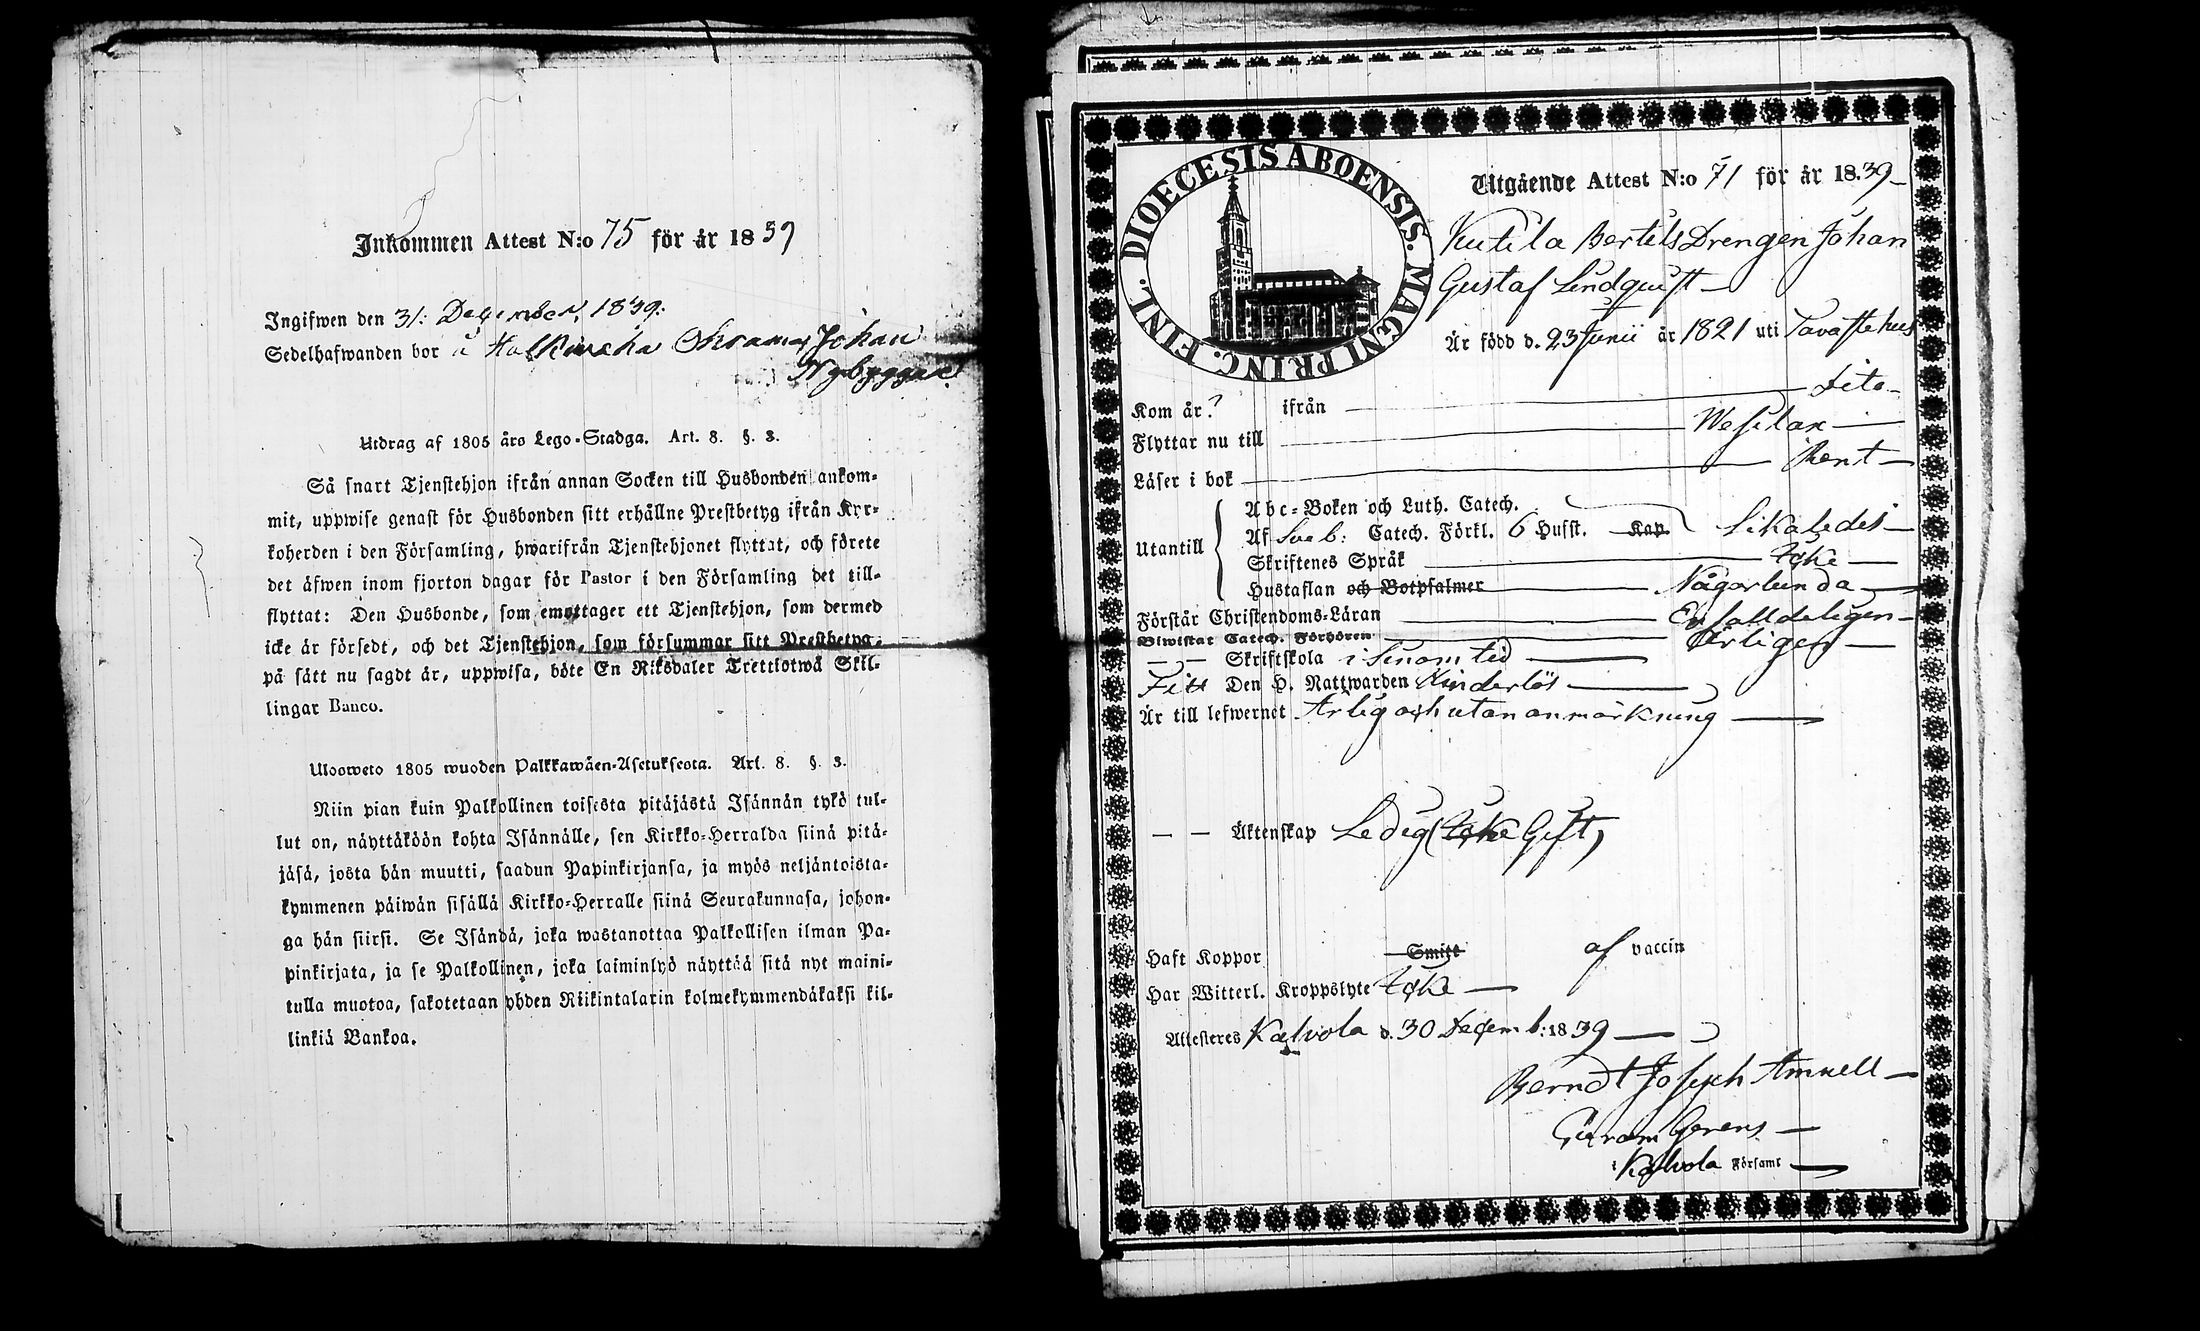 Inkommen Attest N:o 75 för år 1839
Ingifwen den 31: December, 1839:
Sedelhafwanden bor å Johan
Nybyggar
Utdrag af 1805 års Lego-Stadga. Art. 8. §. 3.
Så snart Tjenstehjon ifrån annan Socken till Husbonden ankom-
mit, uppwise genast för Husbonden sitt erhållne Prestbetyg ifrån Kyr-
koherden i den Församling, hwarifrån Tjenstehjonet flyttat, och förete
det äfwen inom fjorton dagar för Pastor i den Församling det till-
flyttat: Den Husbonde, som emottager ett Tjenstehjon, som dermed
icke är försedt, och det Tjenstehjon, som försummar sitt Prestbetyg,
på sätt nu sagdt är, uppwisa, böte En Riksdaler Trettiotwå Skil-
lingar Banco.
Ulosweto 1805 wuoden Palkkawäen-Asetuksesta. Art. 8. §. 3.
Niin pian kuin Palkollinen toisesta pitäjästä Isännän tykö tul-
lut on, näyttäköön kohta Isännälle, sen Kirkko-Herralda siinä pitä-
jäsä, josta hän muutti, saadun Papinkirjansa, ja myös neljäntoista-
kymmenen päiwän sisällä Kirkko-Herralle siinä Seurakunnasa, johon-
ga hän siirsi. Se Isändä, joka wastanottaa Palkollisen ilman Pa-
pinkirjata, ja se Palkollinen, joka laiminlyö näyttää sitä nyt maini-
tulla muotoa, sakotetaan yhden Riikintalarin kolmekymmendäkaksi kil-
linkiä Bankoa.
DIOECESIS ABOENSIS. MAGNI PRINC. FINL.
Utgående Attest N:o 71 för år 1839
Kutila Bertils Drengen Johan
Gustaf Lindquist
Är född d. 23 Junii år 1821 uti Tavastehus
Kom år ? ifrån Dito
Flyttar nu till Wesilax
Läser i bok Rent
Utantill
Abc-Boken och Luth. Catech.
Af Sveb: Catech. Förkl. 6 Hufst. Kap. Likaledes
Skriftenes Språk Icke
Hustaflan och Botpsalmer Någorlunda
Förstår Christendoms-Läran Enfalldeligen
Biwistat Catech. Förhören Årligen
— — Skriftskola i sinom tid
Fitt Den H. Nattwarden Hinderlös
Är till lefwernet Ärlig och utan anmärkning
— — Äktenskap Ledig (Icke Gift)
Haft Koppor Smitt af vaccin
Har Witterl. Kroppslyte Icke
Attesteres Kalvola d. 30 Decemb: 1839
Berndt Joseph Amnell
Curam Gerens
i Kalvola Församl